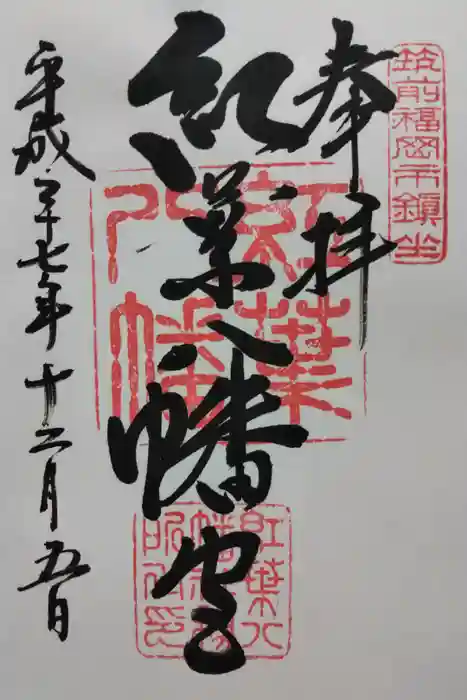 筑前福岡市鎮坐
奉拝
紅葉八幡宮
平成二十七年十二月五日
紅葉八幡